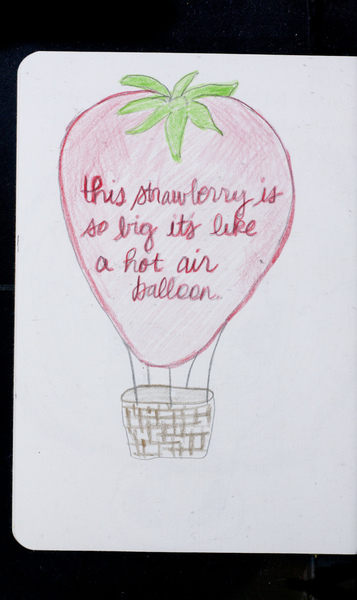 this strawberry is
so big it's like
a hot air
balloon.